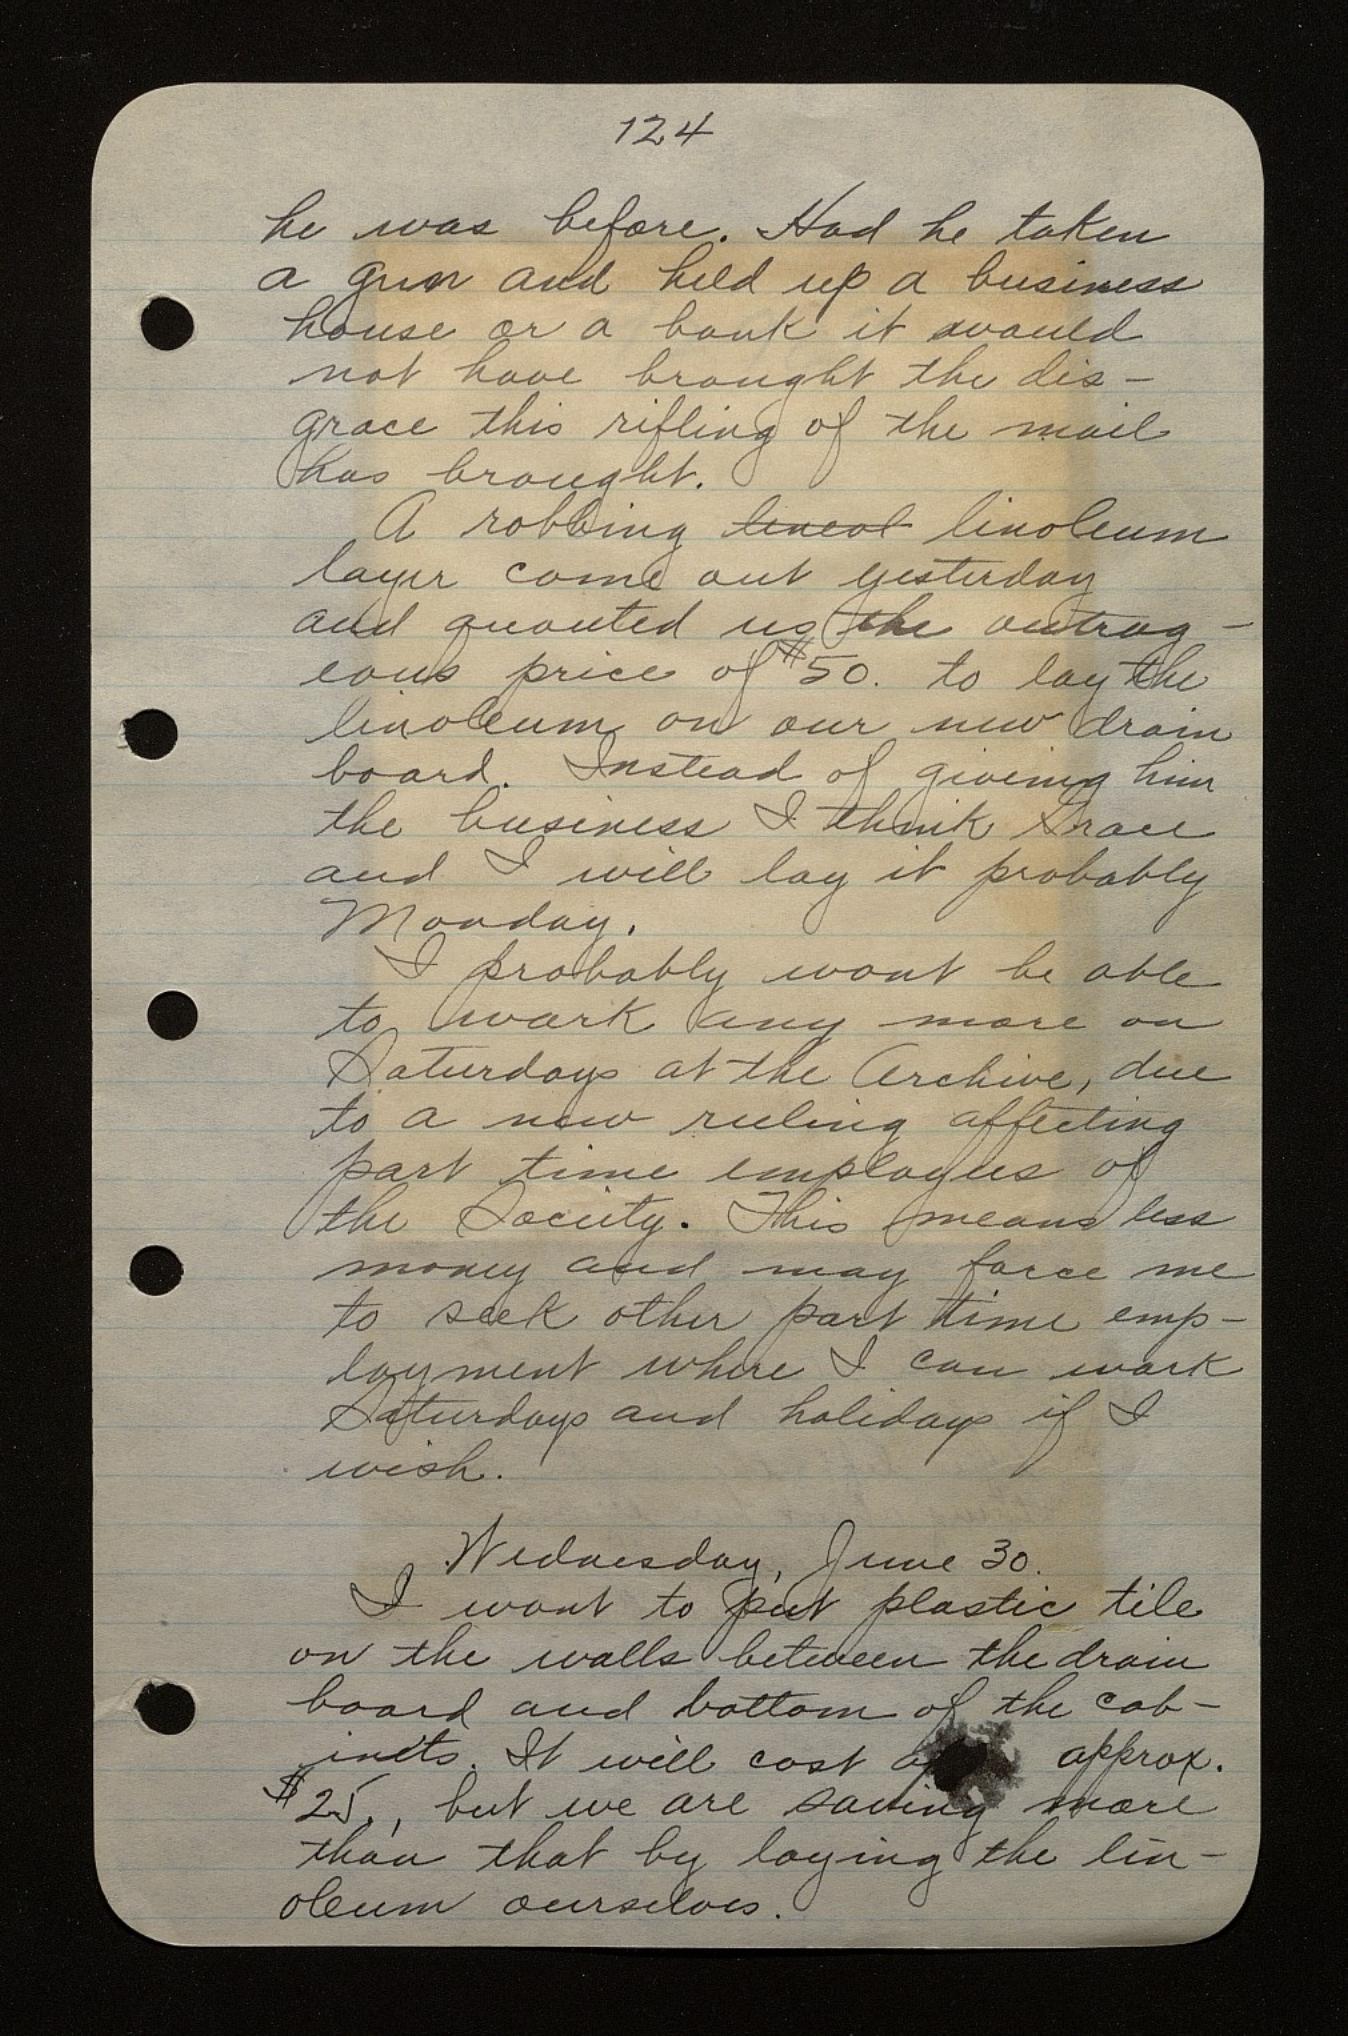 124
he was before. Had he taken
a gun and held up a business
house or a bank it would
not have brought the dis-
grace this rifling of the mail
has brought.
A robbing lineol linoleum
layer came out yesterday
and quouted us the outrag-
eous price of $50. to lay the
linoleum on our new drain
board. Instead of giving him
the business I think Grace
and I will lay it probably
Monday.
I probably wont be able
to work any more on
Saturdays at the Archive, due
to a new ruling affecting
part time employees of
the Society. This means less
money and may force me
to seek other part time emp-
loyment where I can work
Saturdays and holidays if I
wish.
Wednesday, June 30.
I want to put plastic tile
on the walls between the drain
board and bottom of the cab-
inets. It will cost approx.
$25., but we are saving more
than that by laying the lin-
oleum ourselves.